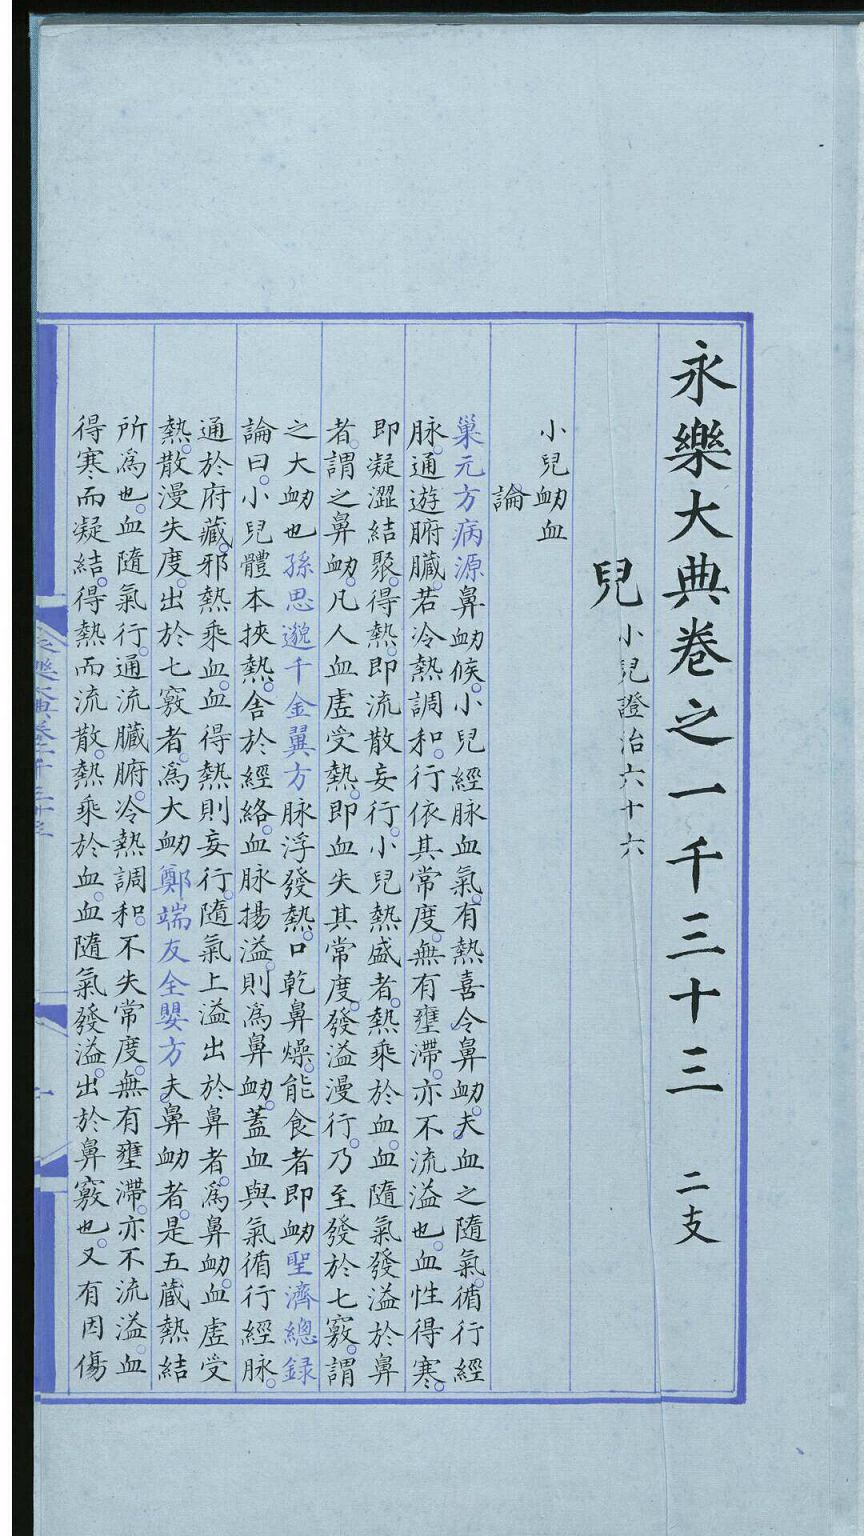 永樂大典卷之一千三十三　二支
兒　小兒證治六十六
小兒衂血
論
巢元方病源鼻衂候。小兒經脉血氣。有熱喜令鼻衂。夫血之隨氣。循行經
脉。通遊腑臟。若冷熱調和。行依其常度。無有壅滯。亦不流溢也。血性得寒。
即凝澀結聚。得熱。即流散妄行。小兒熱盛者。熱乘於血。血隨氣發溢於鼻
者。謂之鼻衂。凡人血虛受熱。即血失其常度。發溢漫行。乃至發於七竅。謂
之大衂也孫思邈千金翼方脉浮發熱。口乾鼻燥。能食者即衂聖濟總錄
論曰。小兒體本挾熱。舍於經絡。血脉揚溢。則爲鼻衂。蓋血與氣循行經脉。
通於府藏。邪熱乘血。血得熱則妄行。隨氣上溢出於鼻者。爲鼻衂。血虛受
熱。散漫失度。出於七竅者。爲大衂鄭端友全嬰方夫。鼻衂者。是五藏熱結
所爲也。血隨氣行。通流臟腑。冷熱調和。不失常度。無有壅滯。亦不流溢。血
得寒而凝結。得熱而流散。熱乘於血。血隨氣發溢。出於鼻竅也。又有因傷
永樂大典卷之一千三十三
一